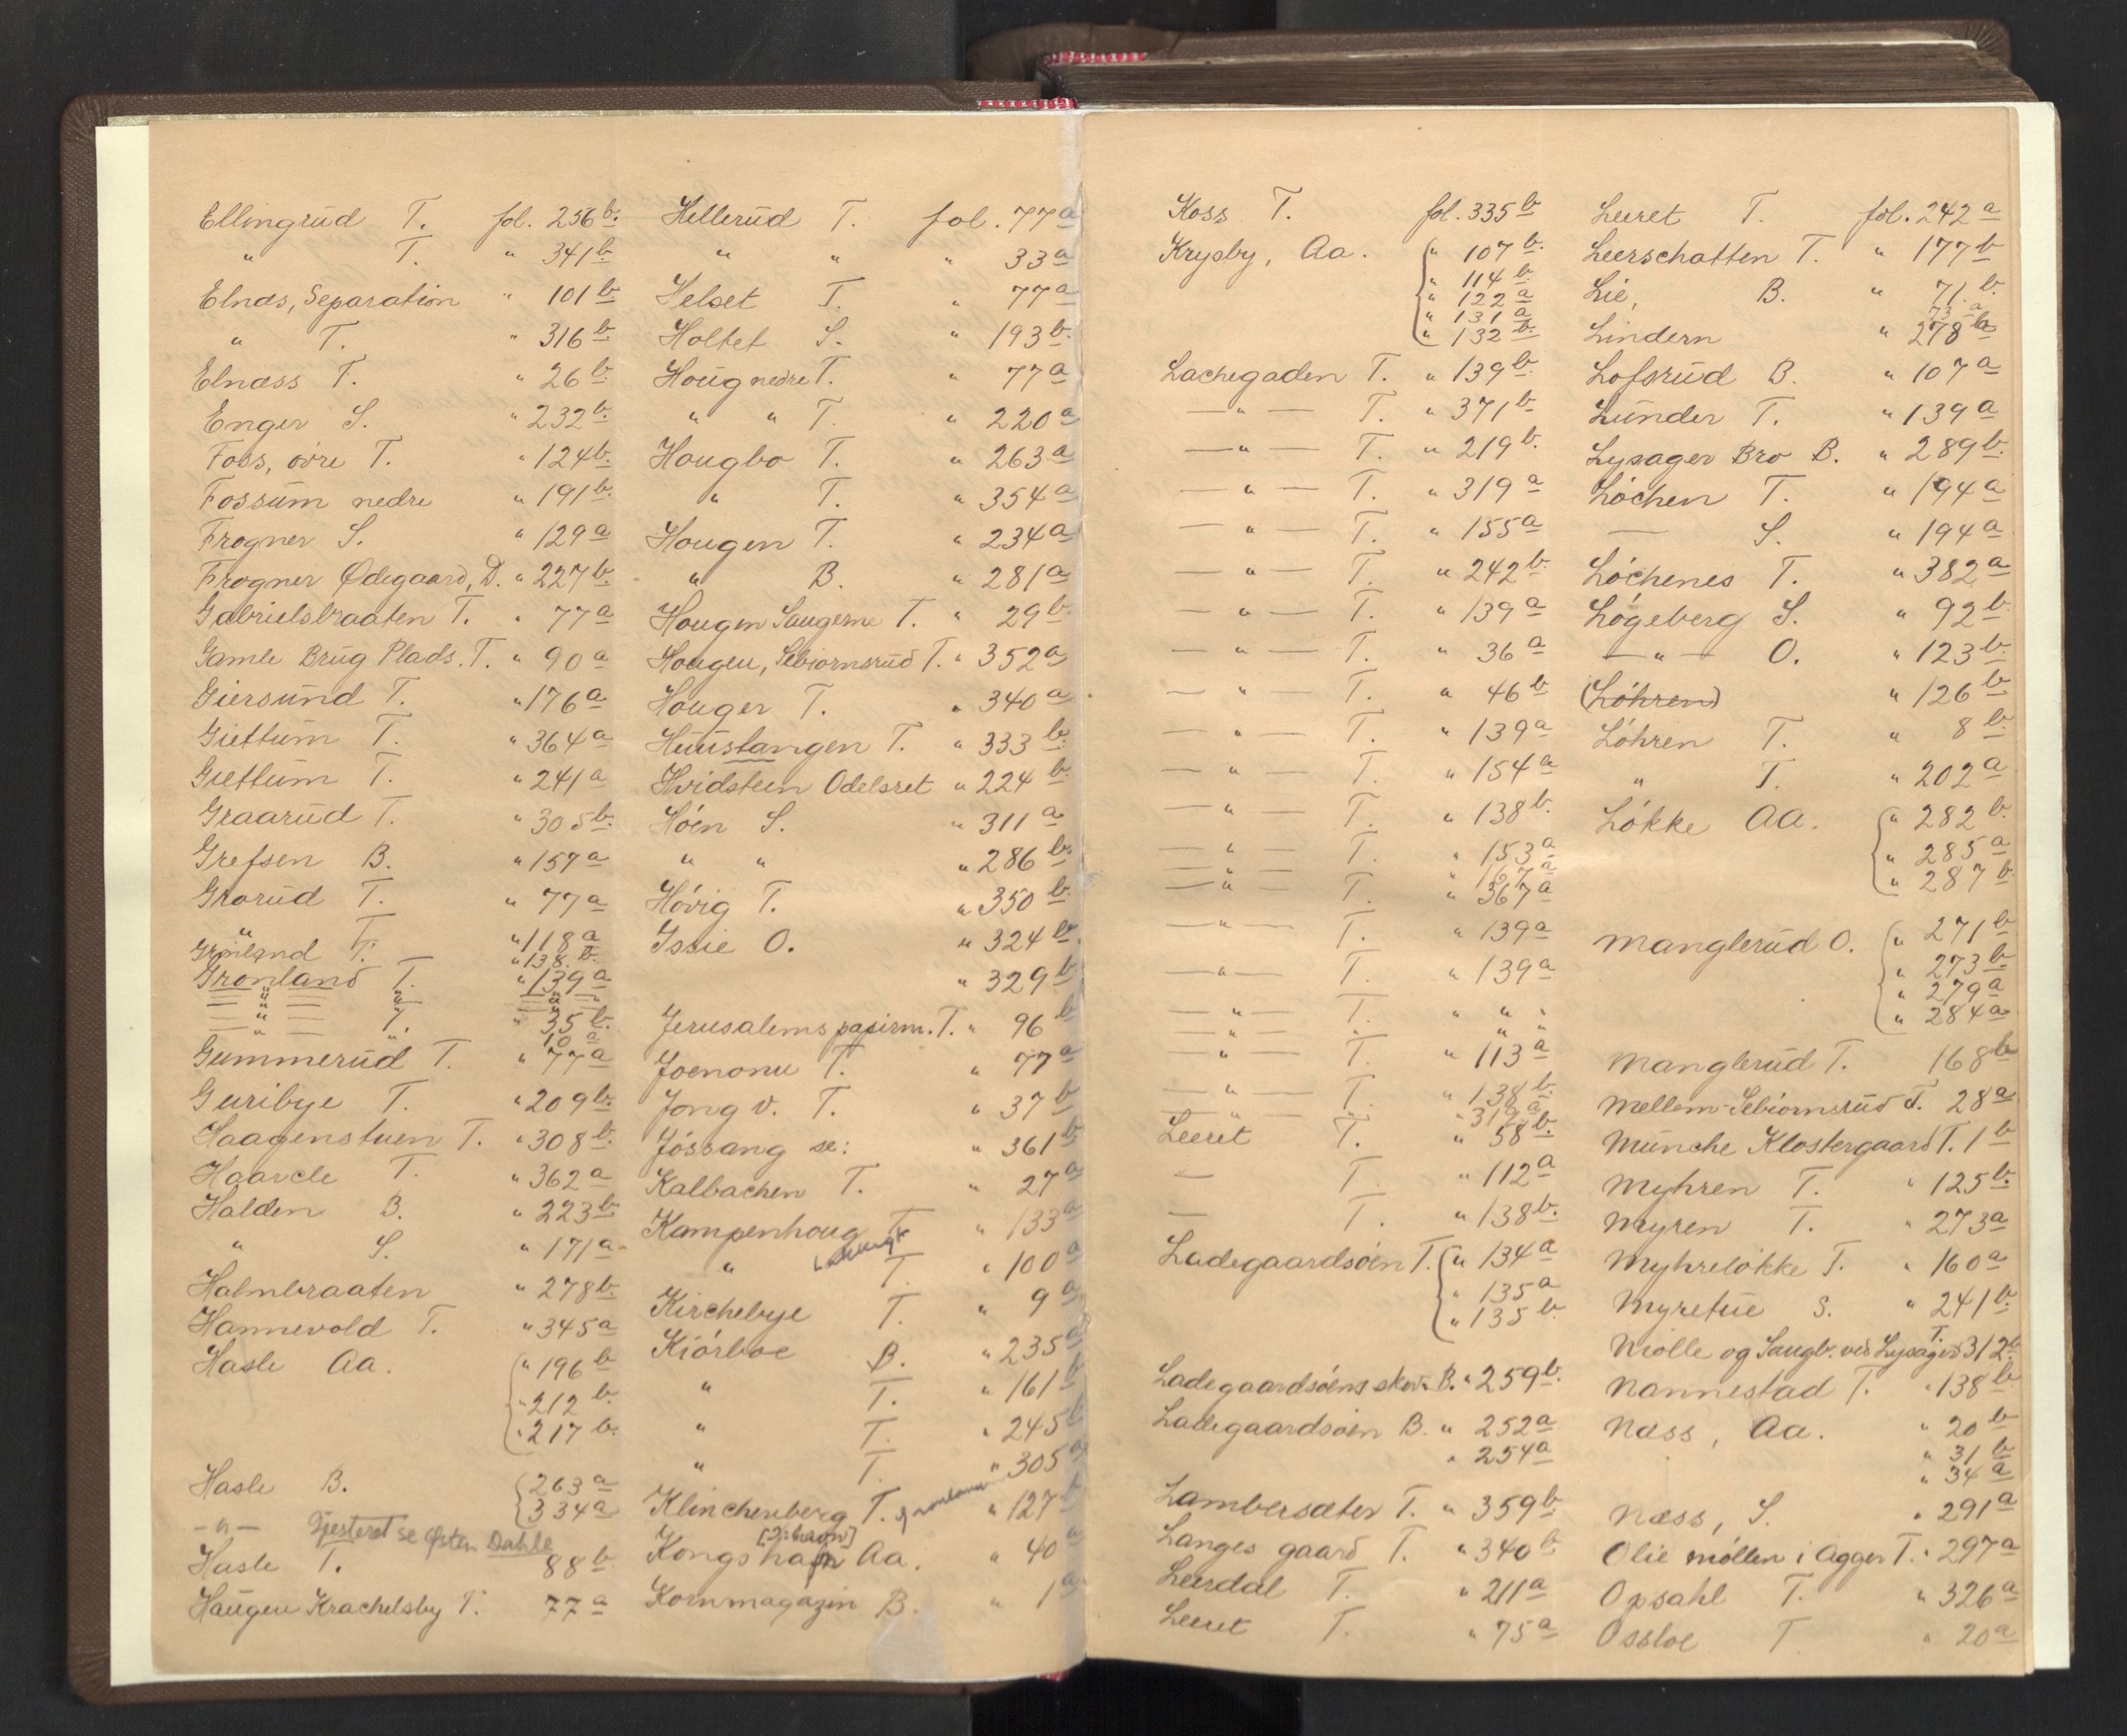 Ellingrud T. fol. 256 b.
" T. " 341 b
Elnæs, Separation " 101 b.
" T. " 316 b
Elnæss T. " 26 b.
Enger S. " 232 b.
Foss, övre T. " 124 b.
Fossum nedre " 191 b.
Frogner S. " 129 a
Frogner Ødegaard, D. " 227 b.
Gabrielsbraaten T. " 77 a
Gamle Brug Plads. T. " 90 a
Giersund T. " 176 a
Giettum T. " 364 a
Giettum T. " 241 a
Graarud T. " 305 b.
Grefsen B. " 157 a
Grorud T. " 77 a
" T. " 118 a
Grönland T. " 138. b.
Grönland T. " 139 a
— " — " "
— " — T. " 35 b.
— " — " 10 a
Gummerud T. " 77 a
Guribye T. " 209 b.
Haagenstuen T. " 308 b.
Haarcle T. " 362 a
Halden B. " 223 b
" S. " 171 a
Halmbraaten " 278 b.
Hannevold T. " 345 a
Hasle Aa. " 196 b
" 212 b.
" 217 b.
Hasle B. 263 a
334 a
— " — Tjesteret se Østen Dahle
Hasle T. 88 b
Haugen Krachelsby T. 77 a
Hellerud T. fol. 77 a
" " " 33 a
Helset T. " 77 a
Holtet S. " 193 b.
Houg nedre T. " 77 a
" " T. " 220 a
Hougbo T. " 263 a
" T. " 354 a
Hougen T. " 234 a
" B. " 281 a
Hougen Saugerne T. " 29 b.
Hougen, Sebiornsrud T. " 352 a
Houger T. " 340 a
Huustangen T. " 333 b.
Hvidsteen Odelsret " 224 b.
Höen S. " 311 a
" " " 286 b.
Hövig T. " 350 b.
Issie O. " 324 b.
" 329 b
Jerusalems papirm. T. " 96 b
Joenonu T. " 77 a
Jong v. T. " 37 b
Jössang se: " 361 b
Kalbachen T. " 27 a
Kampenhoug T. " 133 a
" T. " 100 a
Kirchebye T. " 9 a
Kiörboe B. " 235 a
" T. " 161 b
" T. " 245 b
" T. " 305 a
Klinchenberg T. grønland " 127 b
[J: havn]
Kongshafn Aa. " 40 a
Kornmagazin B. " 1 a
Koss T. fol. 335 b
Krysby, Aa. " 107 b.
" 114 b.
" 122 a
" 131 a
" 132 b.
Lachegaden T. " 139 b.
— " — T. " 371 b
— " — T. " 219 b.
— " — T. " 319 a
— " — T. " 155 a
— " — T. " 242 b.
— " — T. " 139 a
— " — T. " 36 a
— " — T. " 46 b
— " — T. " 139 a
— " — T. " 154 a
— " — T. " 138 b.
— " — T. " 153 a
— " — " 167 a
— " — T. " 367 a
— " — T. " 139 a
— " — T. " 139 a
— " — T. " " "
— " — " " "
— " — T. " 113 a
— " — T. " 138 b.
— " — " " 319 a
Leeret T. " 58 b.
— T. " 112 a
— T. " 138 b.
Ladegaardsöen T. " 134 a
" 135 a
" 135 b.
Ladegaardsöens skov. B. " 259 b.
Ladegaardsöen B. " 252 a
" 254 a
Lambersæter T. " 359 b.
Langes gaard T. " 340 b
Leerdal T. " 211 a
Leeret T. " 75 a
Leeret T. fol. 242 a
Leerschatten T. " 177 b
Lie, B. " 71. b.
73 a
Lindern " 278 b
Lofsrud B. " 107 a
Lunder T. " 139 a
Lysager Bro B. " 289 b.
Löchen T. " 194 a
— S. " 194 a
Löchenes T. " 382 a
Lögeberg S. " 92 b.
— " — O. " 123 b.
(Löhren) " 126 b
Löhren T. " 8 b.
" T. " 202 a
Lökke AA. " 282 b.
" 285 a
" 287 b.
Manglerud O. " 271 b
" 273 b
" 279 a
" 284 a
Manglerud T. 168 b
Mellem-Sebiornsrud T. 28 a
Munche Klostergaard T. 1 b
Myhren T. " 125 b.
Myren T. " 273 a
Myhrelökke T. " 160 a
Myretue S. " 241 b.
Mölle og Saugb. ved Lysager T. 312 b.
Nannestad T. " 138 b
Næss, Aa. " 20 b
" 31 b
" 34 a
Næss, S. " 291 a
Olie möllen i Agger T. " 297 a
Opsahl T. " 326 a
Ossloe T " 20 a